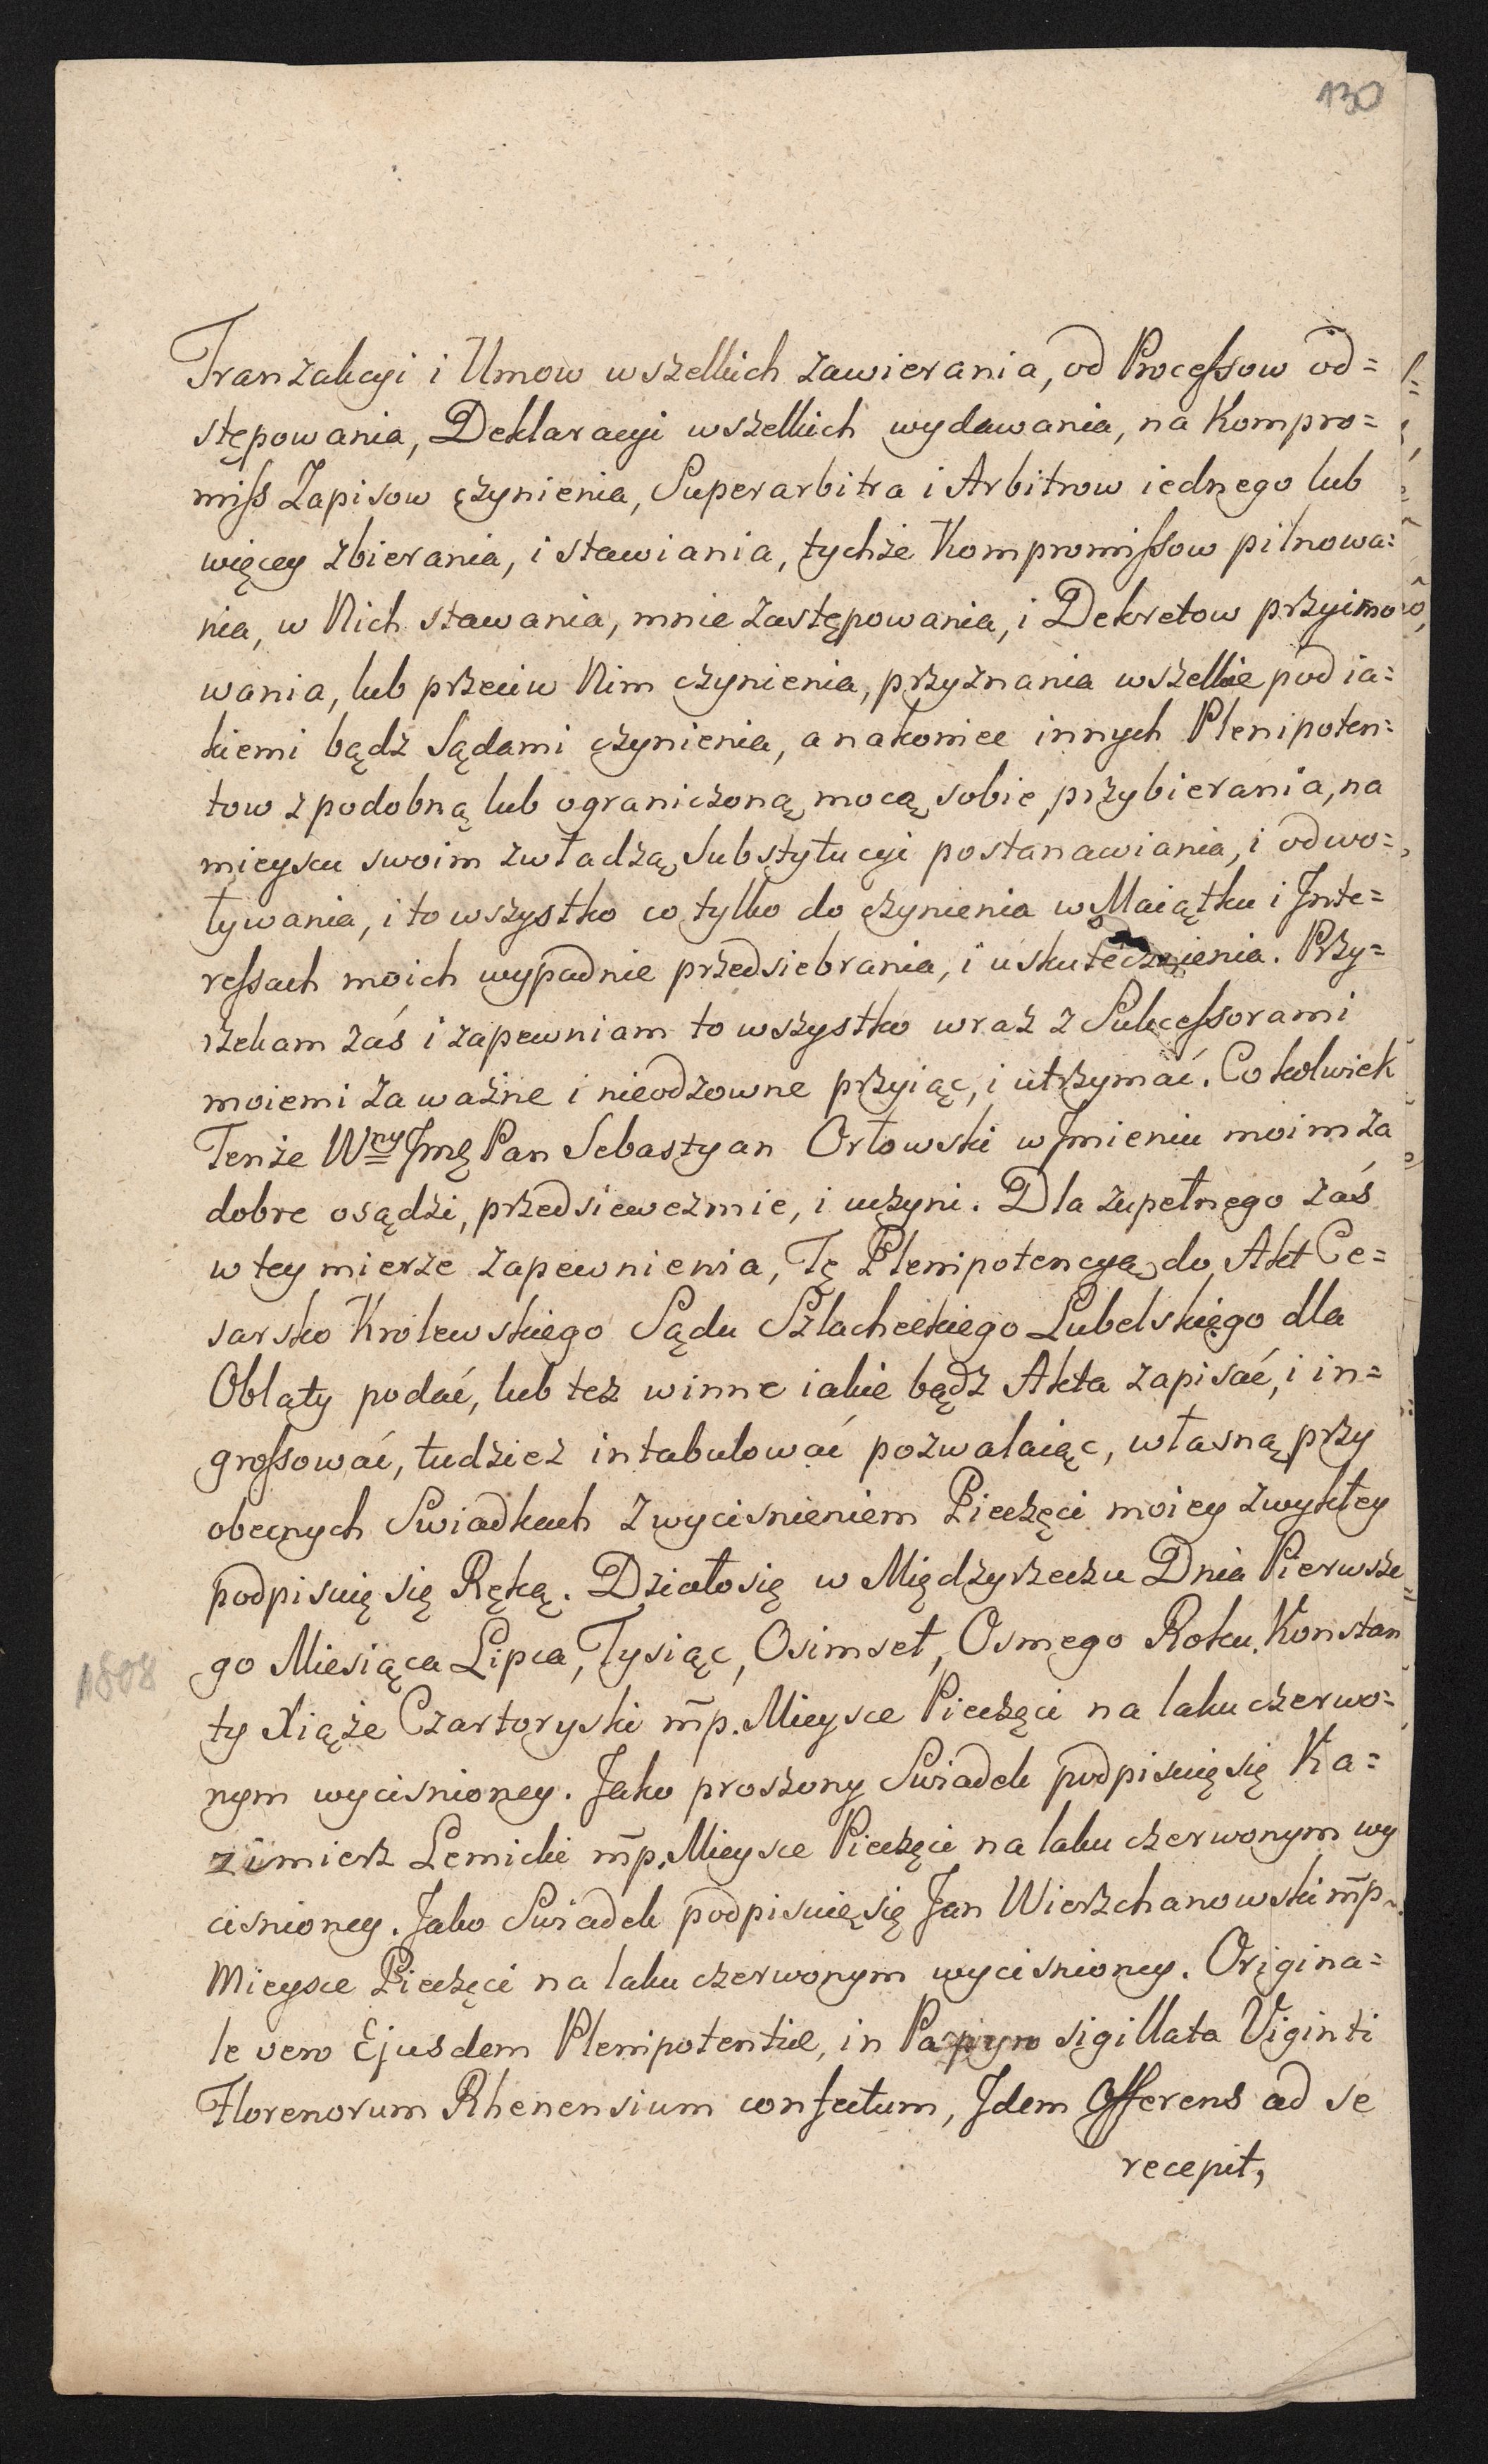 130
Tranzakcyi i Umow wszelkich zawierania, od Processow od=
stępowania, Deklaracyi wszelkich wydawania, na Kompro=
miss Zapisow czynienia, Superarbitra i Arbitrow iednego lub
więcey zbierania, i stawiania, tychże Kompromissow pilnowa=
nia, w Nich stawania, mnie zastępowania, i Dekretow przyimo
wania, lub przeciw Nim czynienia, przyznania wszelkie pod ia=
kiemi bądz Sądami czynienia, a nakoniec innych Plenipoten=
tow z podobną lub ograniczoną mocą sobie przybierania, na
mieyscu swoim zwładzą Substytucyi postanawiania, i odwo=
ływania, i to wszystko co tylko do czynienia w Maiątku i Inte=
ressach moich wypadnie przedsiebrania, i uskutecznienia. Przy=
rzekam zaś i zapewniam to wszystko wraz z Sukcessorami
moiemi za ważne i nieodzowne przyiąc, i utrzymać. Cokolwiek
Tenże Wny Jmę Pan Sebastyan Orłowski w Jmieniu moim za
dobre osądzi, przedsiewezmie, i uczyni. Dla zupełnego zaś
w tey mierze zapewnienia, Tę Plenipotencyą do Akt Ce=
sarsko Krolewskiego Sądu Szlacheckiego Lubelskiego dla
Oblaty podać, lub też w inne iakie bądz Akta zapisać, i in=
grossować, tudziez intabulować pozwalaiąc, własną przy
obecnych Swiadkach z wycisnieniem Pieczęci moiey zwykłey
podpisuię się Ręką. Działo się w Międzyrzeczu Dnia Pierwsze=
go Miesiąca Lipca, Tysiąc, Osimset, Osmego Roku. Konstan
1808
ty Xiąże Czartoryski mp. Mieysce Pieczęci na laku czerwo=
nym wycisnioney. Jako proszony Swiadek podpisuię się Ka=
zimierz Lemicki mp. Mieysce Pieczęci na laku czerwonym wy
cisnioney. Jako Swiadek podpisuię się Jan Wierzchanowski mp.
Mieysce Pieczęci na laku czerwonym wycisnioney. Origina=
le vero Ejusdem Plenipotentiæ, in Papyro sigillata Viginti
Florenorum Rhenensium confectum, Idem Offerens ad se
recepit,